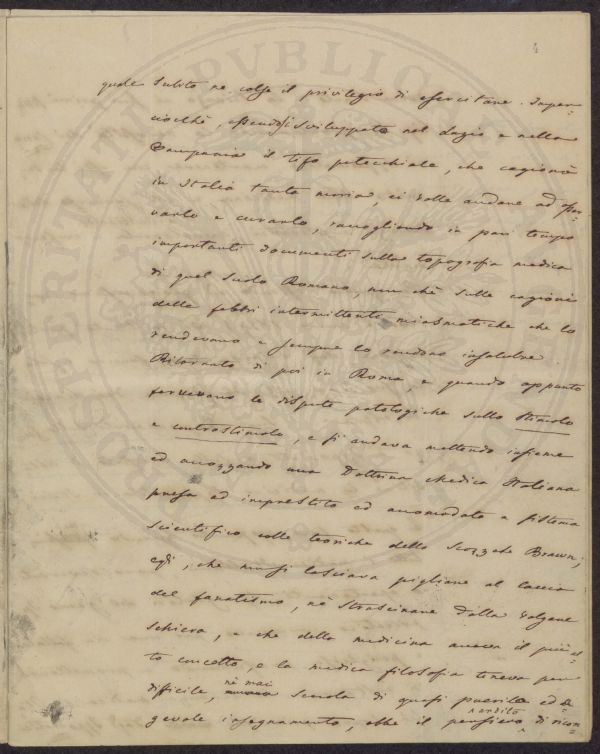 4
quale subito ne colse il privilegio di esercitare. Imper=
ciocchè, essendosi sviluppato nel Lazio e nella
Campania il tifo petecchiale, che cagionò
in Italia tanta moria, ei volle andare ad osser=
varlo e curarlo, raccogliendo in pari tempo
importanti documenti sulla topografia medica
di quel suolo Romano, non chè sulle cagioni
delle febbri intermittenti miasmatiche che lo
rendevano e sempre lo rendono insalubre.
Ritornato di poi in Roma, e quando appunto
fervevano le dispute patologiche sullo Stimolo
e controstimolo, e si andava mettendo insieme
ed accozzando una Dottrina Medica Italiana
presa ad imprestito ed accomodata a sistema
scientifico colle teoriche dello Scozzese Brawn;
egli, che non si lasciava pigliare al laccio
del fanatismo, nè strascinare dalla volgare
schiera, e che della medicina aveva il più al=
to concetto, e la medica filosofia teneva per
difficile, nè mai scuola di quasi puerile ed a=
gevole insegnamento, ebbe il pensiero ardito di ricon=
PROSPERITATI PVBLICAE